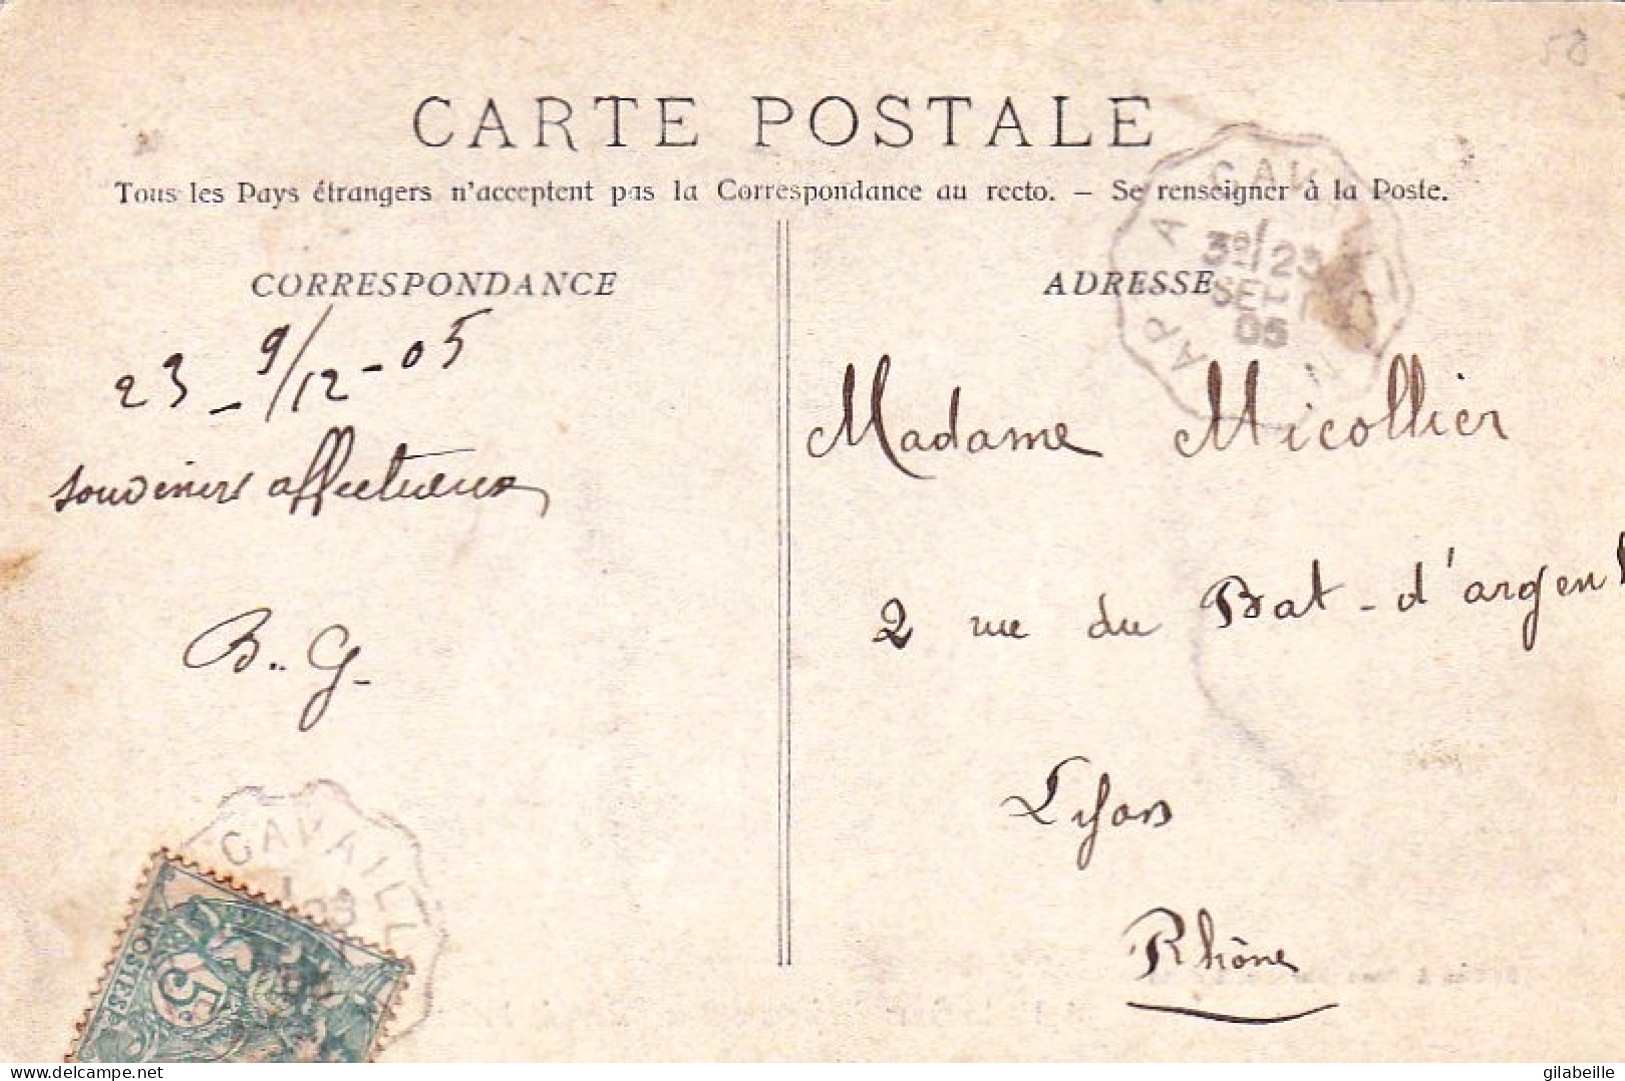 58
CARTE POSTALE
Tous les Pays étrangers n'acceptent pas la Correspondance au recto. — Se renseigner à la Poste.
CORRESPONDANCE
23 - 9/12 - 05
souvenirs affectueux
B.. G.
ADRESSE
GAP A CAV
3º/23
SEPT
05
Madame Micollier
2 rue du Bat-d'argent
Lyon
Rhône
CAVAILL
23
5
POSTES
www.delcampe.net
gilabeille